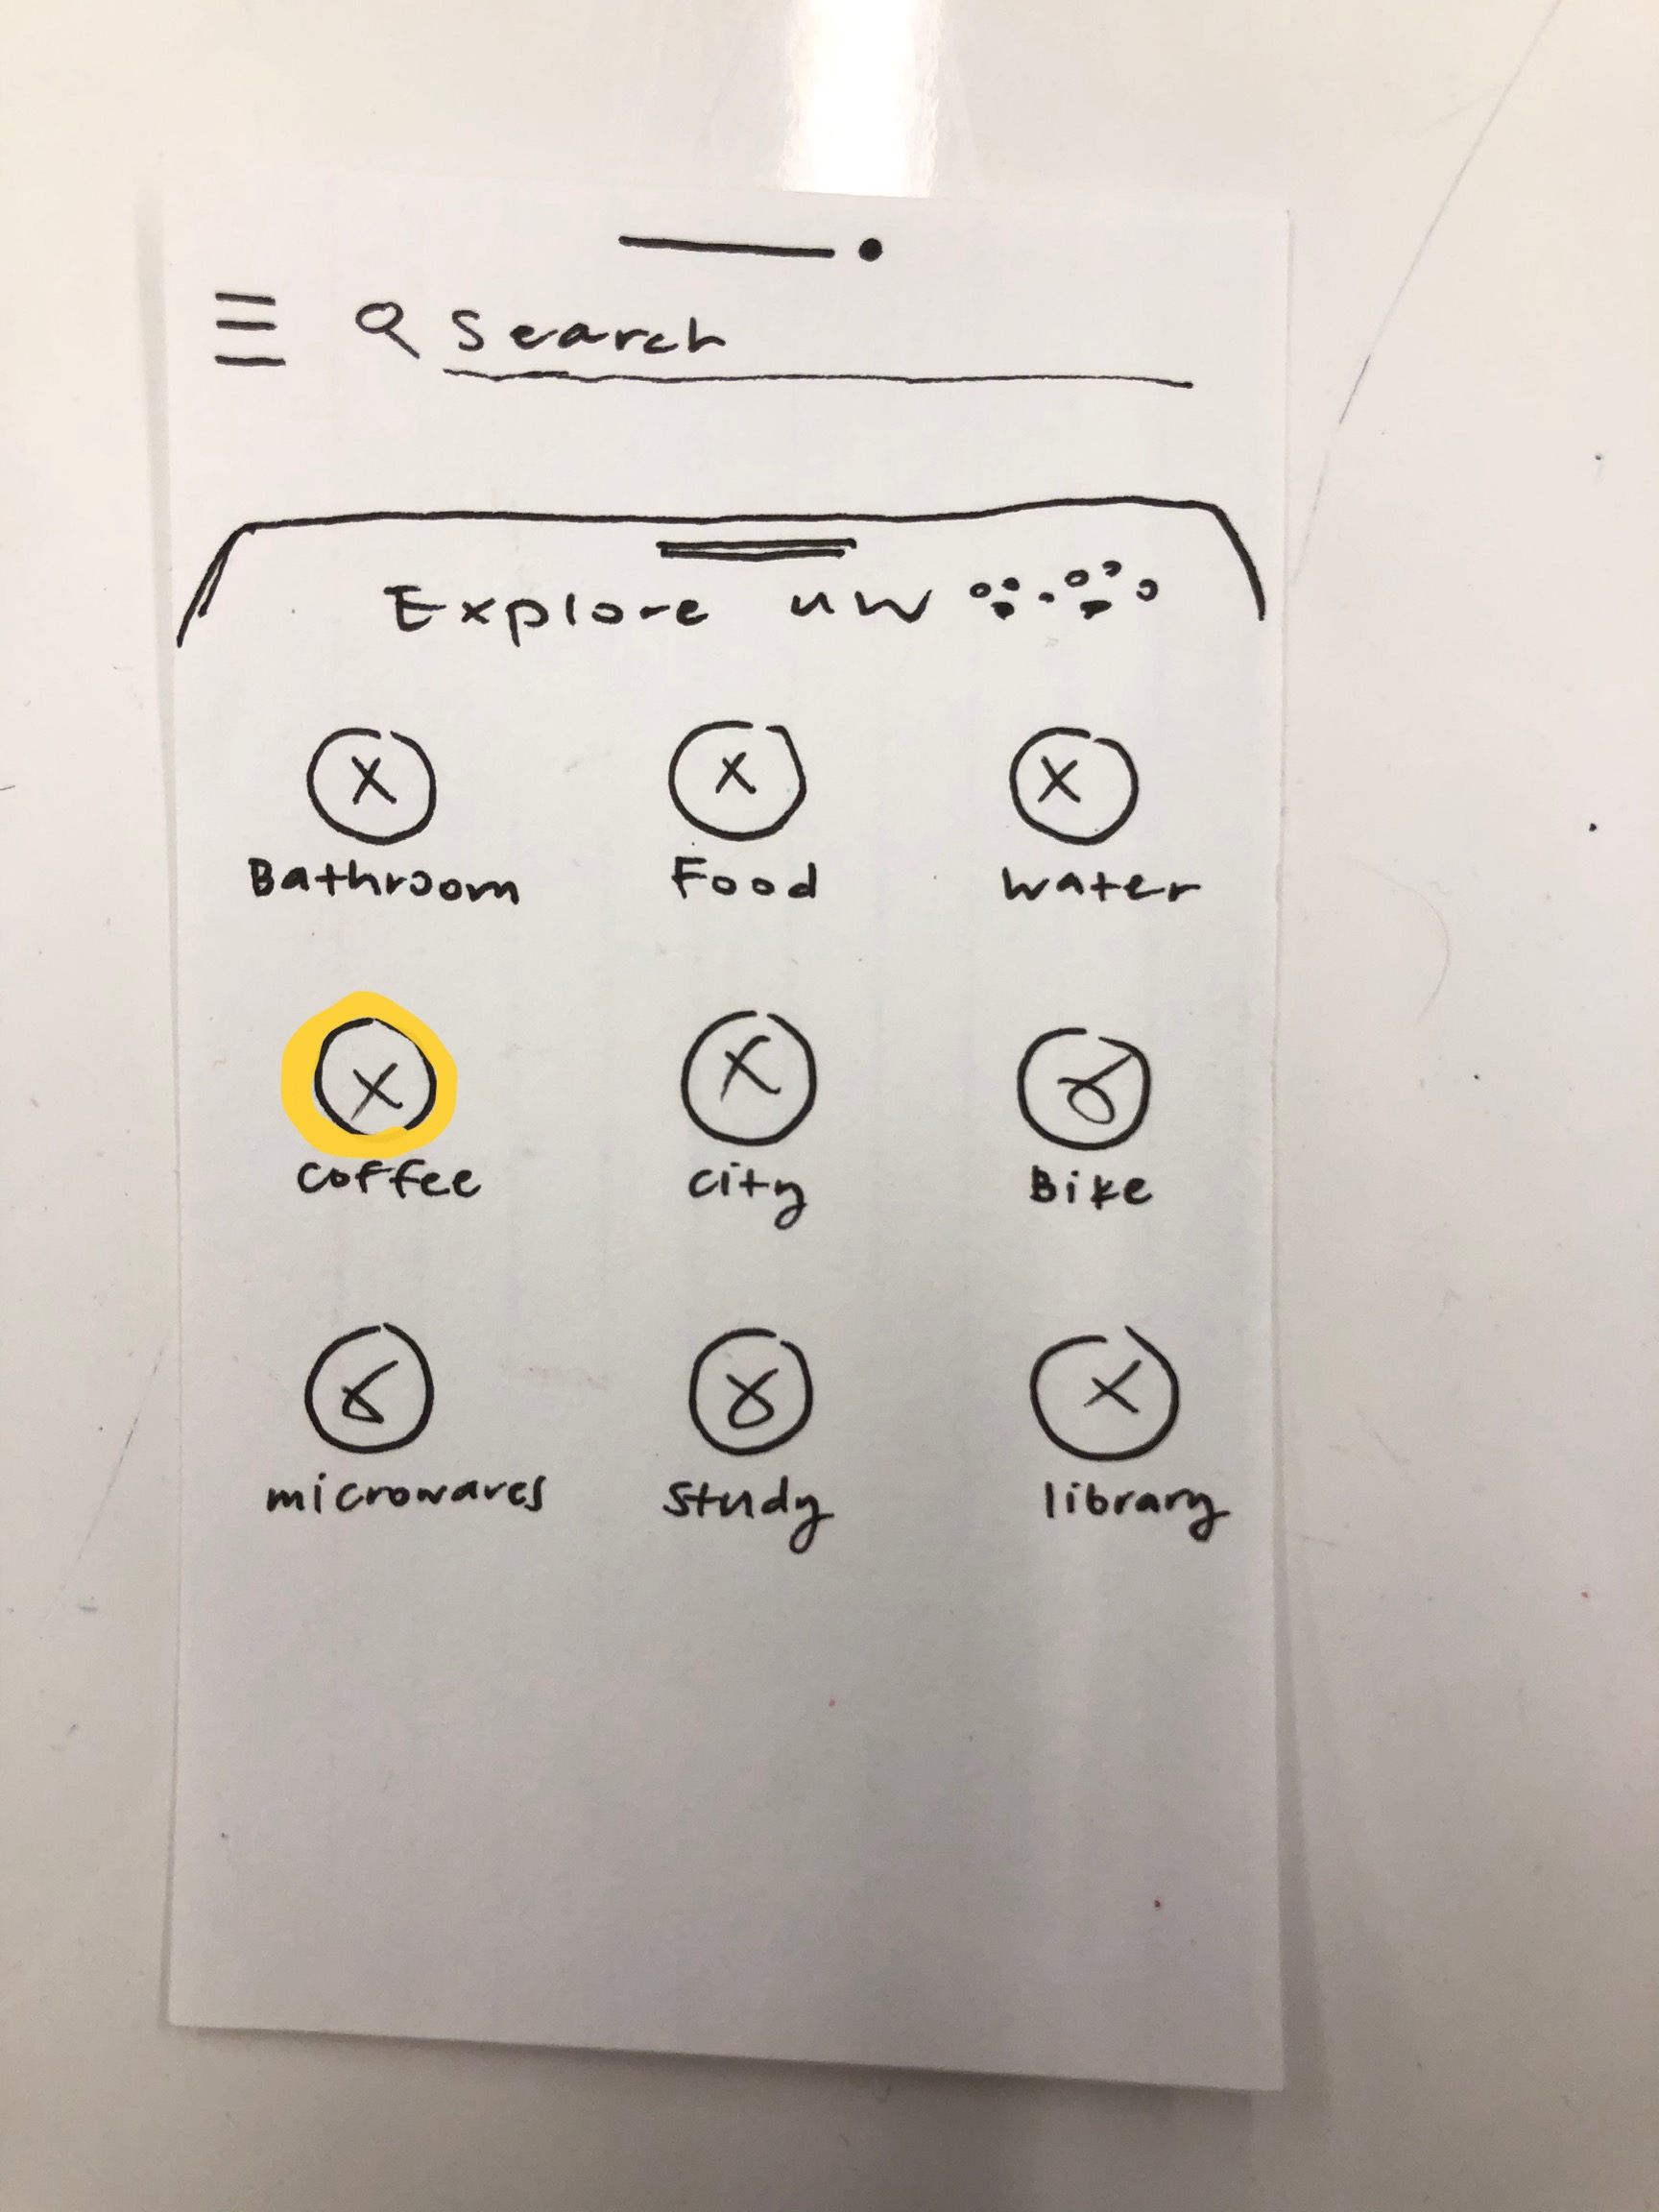 Search
Explore UW
Bathroom Food Water
coffee city Bike
microwaves study library